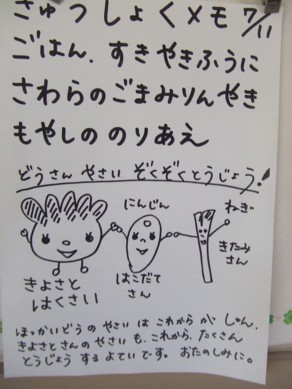 きゅうしょくメモ 7/11
ごはん、すきやきふうに
さわらのごまみりんやき
もやしののりあえ
どうさん やさい ぞくぞくとうじょう!
にんじん
ねぎ
きよさと
はくさい
はこだて
さん
きたみ
さん
ほっかいどうの やさい は これから が しゅん。
きよさと さんの やさい も、これから、たくさん
とうじょう する よていです。おたのしみに。